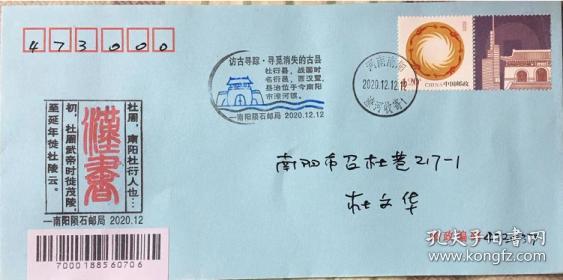 473000
访古寻踪·寻觅消失的古县
杜衍县，战国时
名衍邑，西汉置，
县治位于今南阳
市溧河镇。
—南阳陨石邮局 2020.12.12
河南南阳
2020.12.12
溧河收寄1
中国邮政
CHINA
杜周，南阳杜衍人也…
初，杜周武帝时徙茂陵，
至延年徙杜陵云。
漢書
—南阳陨石邮局 2020.12
7000188560706
南阳市召杜巷217-1
杜文华
邮政编码
孔夫子旧书网
www.kongfz.com